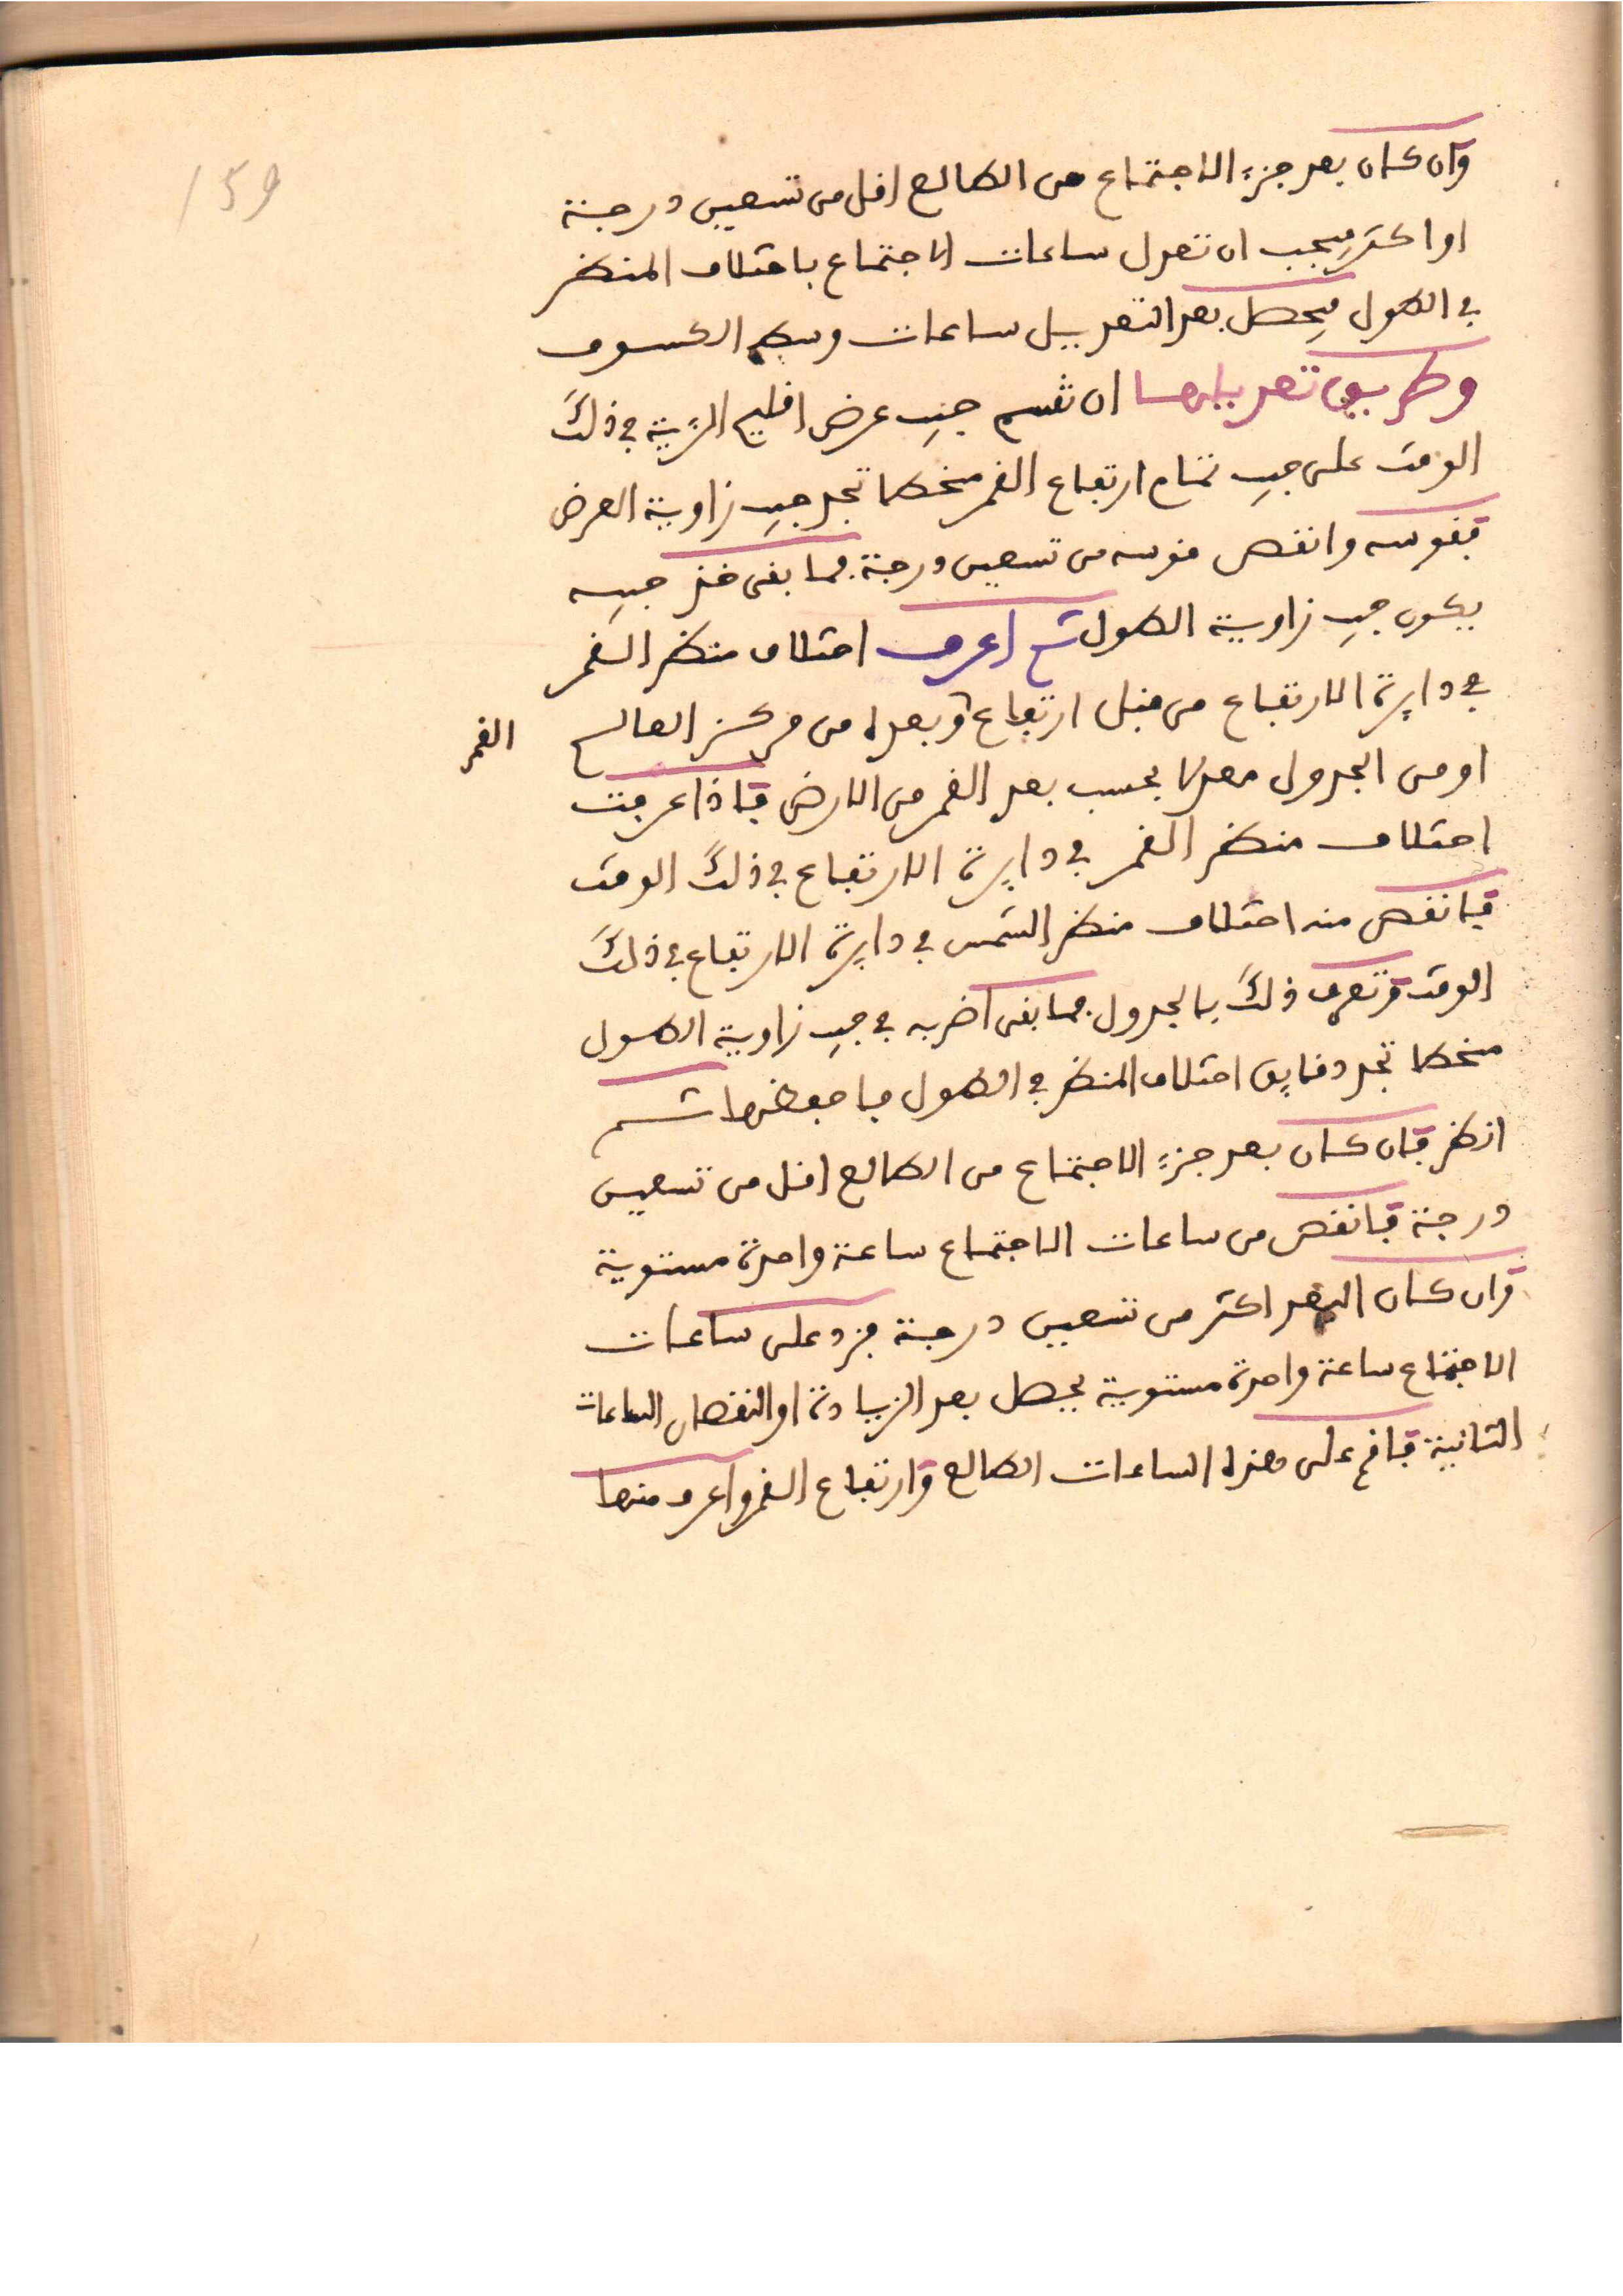 159
وان كان بعد جزء الاجتماع من الطالع اقل من تسعين درجة
او اكثر فيجب ان تعدل ساعات الاجتماع باختلاف المنظر
في الطول فيحصل بعد التعديل ساعات وسط الكسوف
وطريق تعديلها ان تقسم جيب عرض اقليم الرؤية في ذلك
الوقت على جيب تمام ارتفاع القمر منحطا تجد جيب زاوية العرض
فقوسه وانقص قوسه من تسعين درجة فما بقى خذ جيبه
يكون جيب زاوية الطول ثم اعرف اختلاف منظر القمر
في دايرة الارتفاع من قبل ارتفاع وبعده من مركز العالم
القمر
او من الجدول معدلا بحسب بعد القمر من الارض فاذا عرفت
اختلاف منظر القمر في دايرة الارتفاع في ذلك الوقت
فانقص منه اختلاف منظر الشمس في دايرة الارتفاع في ذلك
الوقت وتعرف ذلك بالجدول فما بقى اضربه في جيب زاوية الطول
منحطا تجد دقايق اختلاف المنظر في الطول فاحفظها ثم
انظر فان كان بعد جزء الاجتماع من الطالع اقل من تسعين
درجة فانقص من ساعات الاجتماع ساعة واحدة مستوية
وان كان البعد اكثر من تسعين درجة فزد على ساعات
الاجتماع ساعة واحدة مستوية يحصل بعد الزيادة او النقصان الساعات
الثانية فاقم على هذه الساعات الطالع وارتفاع القمر واعرف منها